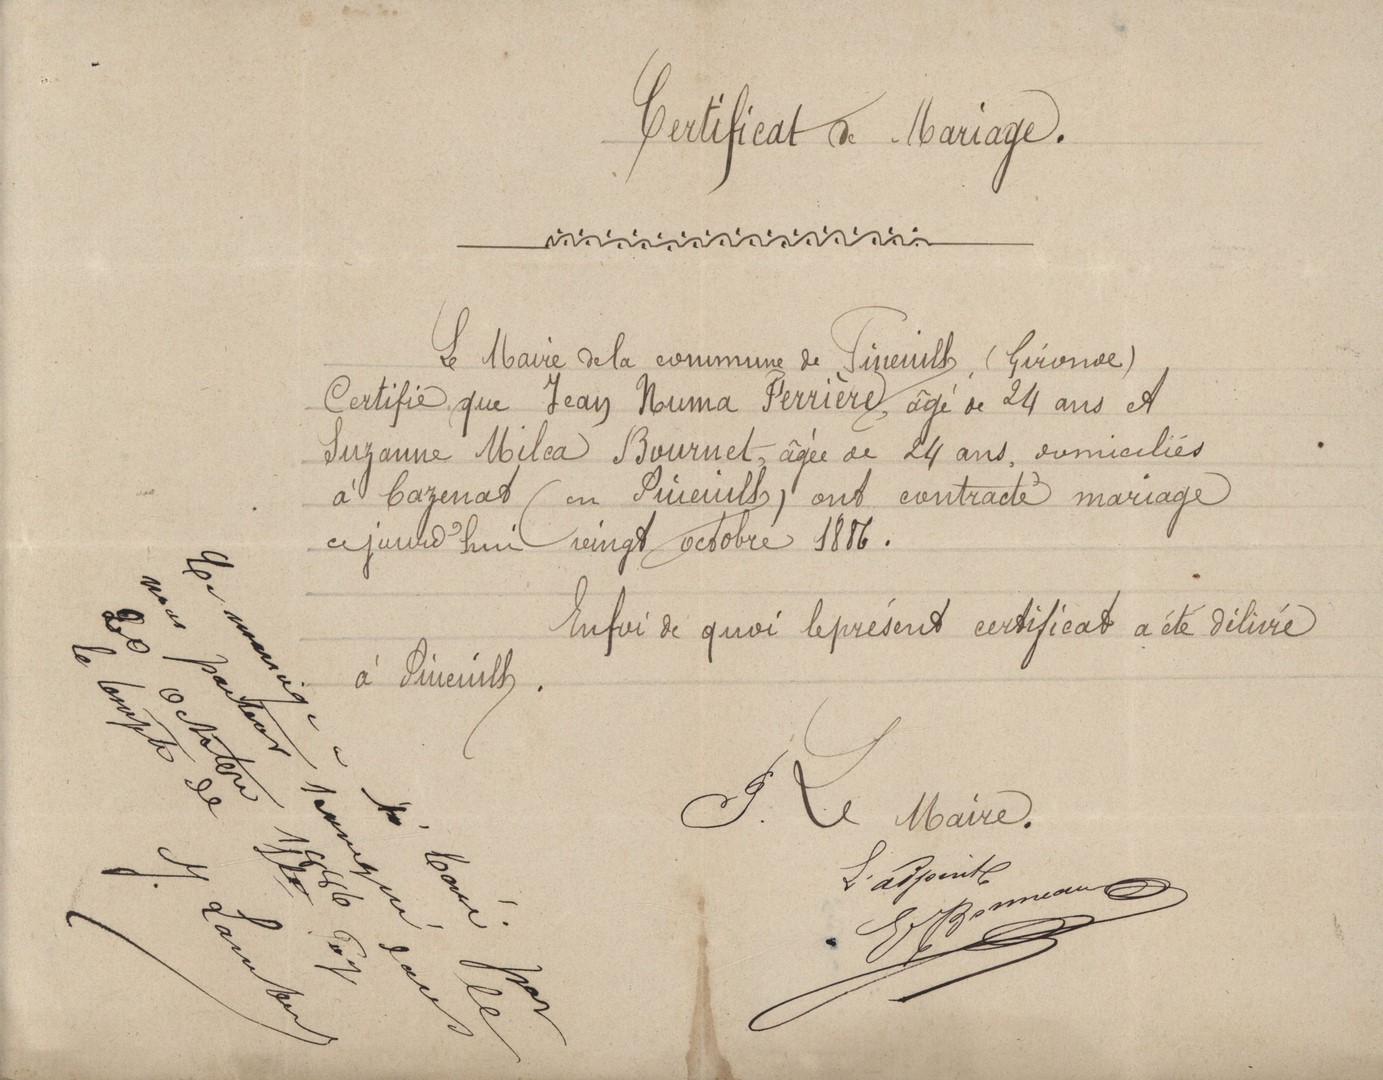 Certificat de Mariage.
Le Maire de la commune de Pineuilh, (Gironde)
Certifie que Jean Numa Ferrière, âgé de 24 ans et
Suzanne Milca Bournet, âgée de 24 ans, domiciliés
à Cazenat (en Pineuilh) ont contracté mariage
cejourd'hui vingt octobre 1886.
Enfoi de quoi leprésent certificat a été délivré
à Pineuilh.
P. Le Maire.
L'adjoint
Bonneau
Ce mariage a été béni par
nous pasteur soussigné dans le
20 octobre 1886
le temple de